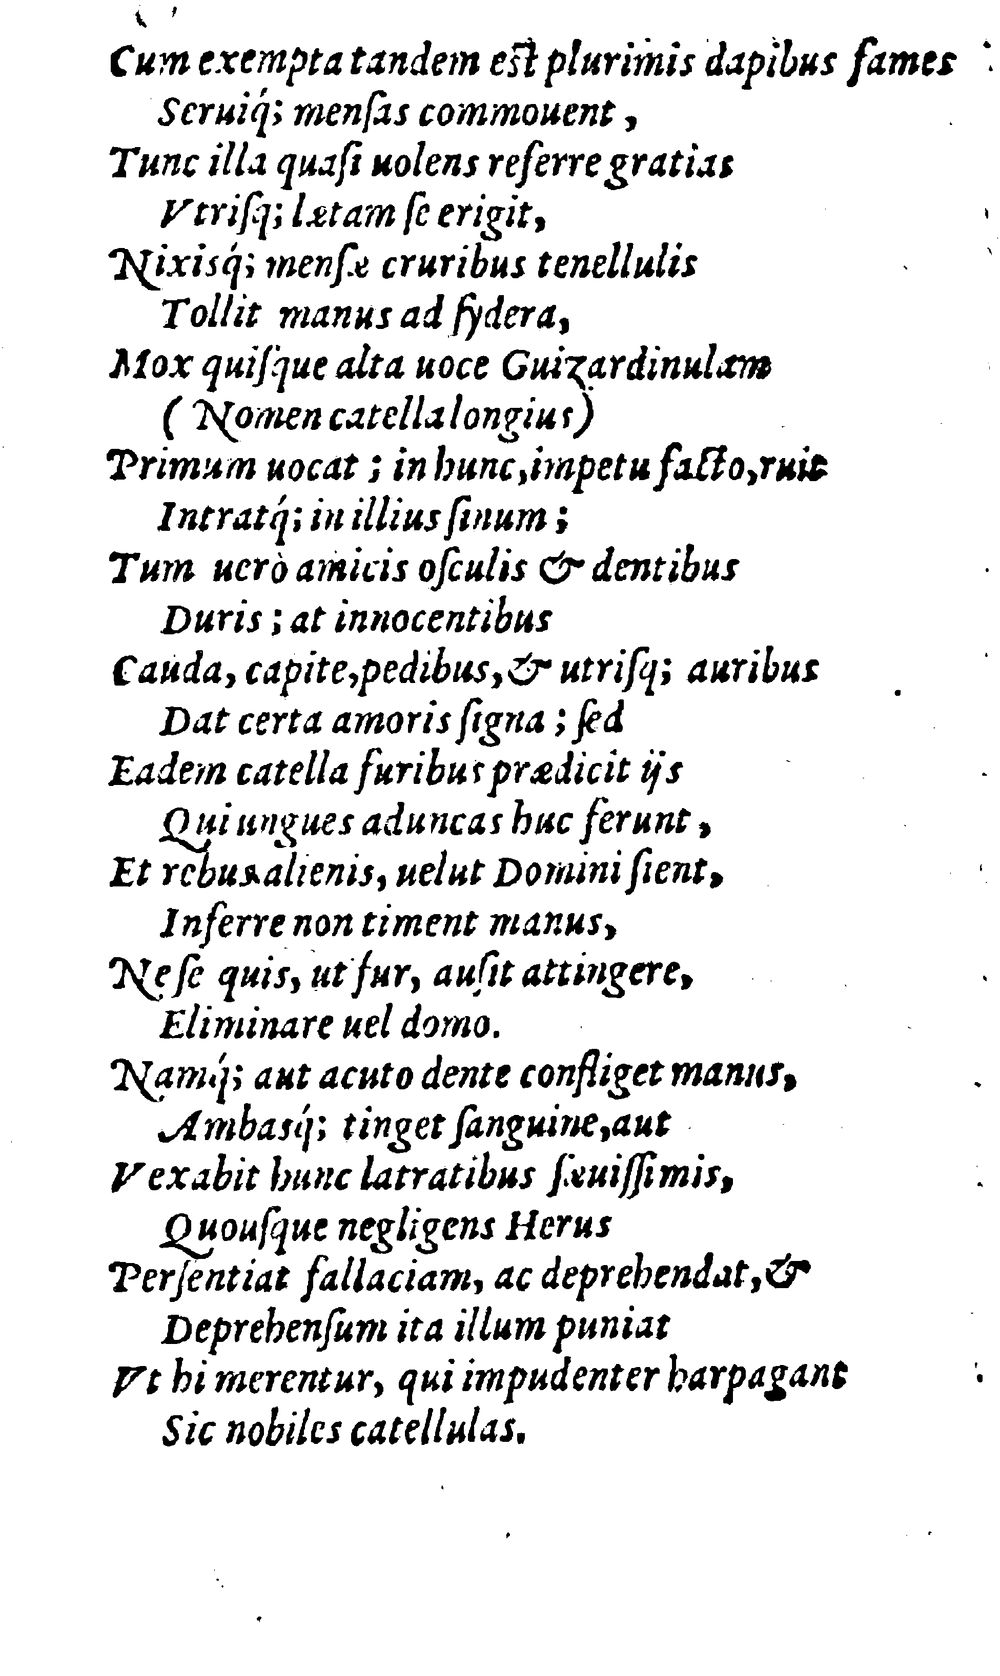 Cum exempta tandem est plurimis dapibus fames
Seruiq́; menſas commouent,
Tunc illa quaſi uolens referre gratias
Vtriſq; lætam ſe erigit,
Nixisq́; menſæ cruribus tenellulis
Tollit manus ad ſydera,
Mox quiſque alta uoce Guizardinulam
(Nomen catella longius)
Primum uocat; in hunc, impetu facto, ruit
Intratq́; in illius ſinum;
Tum uerò amicis oſculis & dentibus
Duris; at innocentibus
Cauda, capite, pedibus, & utriſq; auribus
Dat certa amoris ſigna; ſed
Eadem catella furibus prædicit ijs
Qui ungues aduncas huc ferunt,
Et rebus alienis, uelut Domini ſient,
Inferre non timent manus,
Ne ſe quis, ut fur, auſit attingere,
Eliminare uel domo.
Namq́; aut acuto dente confliget manus,
Ambasq́; tinget ſanguine, aut
Vexabit hunc latratibus ſæuiſſimis,
Quouſque negligens Herus
Perſentiat fallaciam, ac deprehendat, &
Deprehenſum ita illum puniat
Vt hi merentur, qui impudenter harpagant
Sic nobiles catellulas.